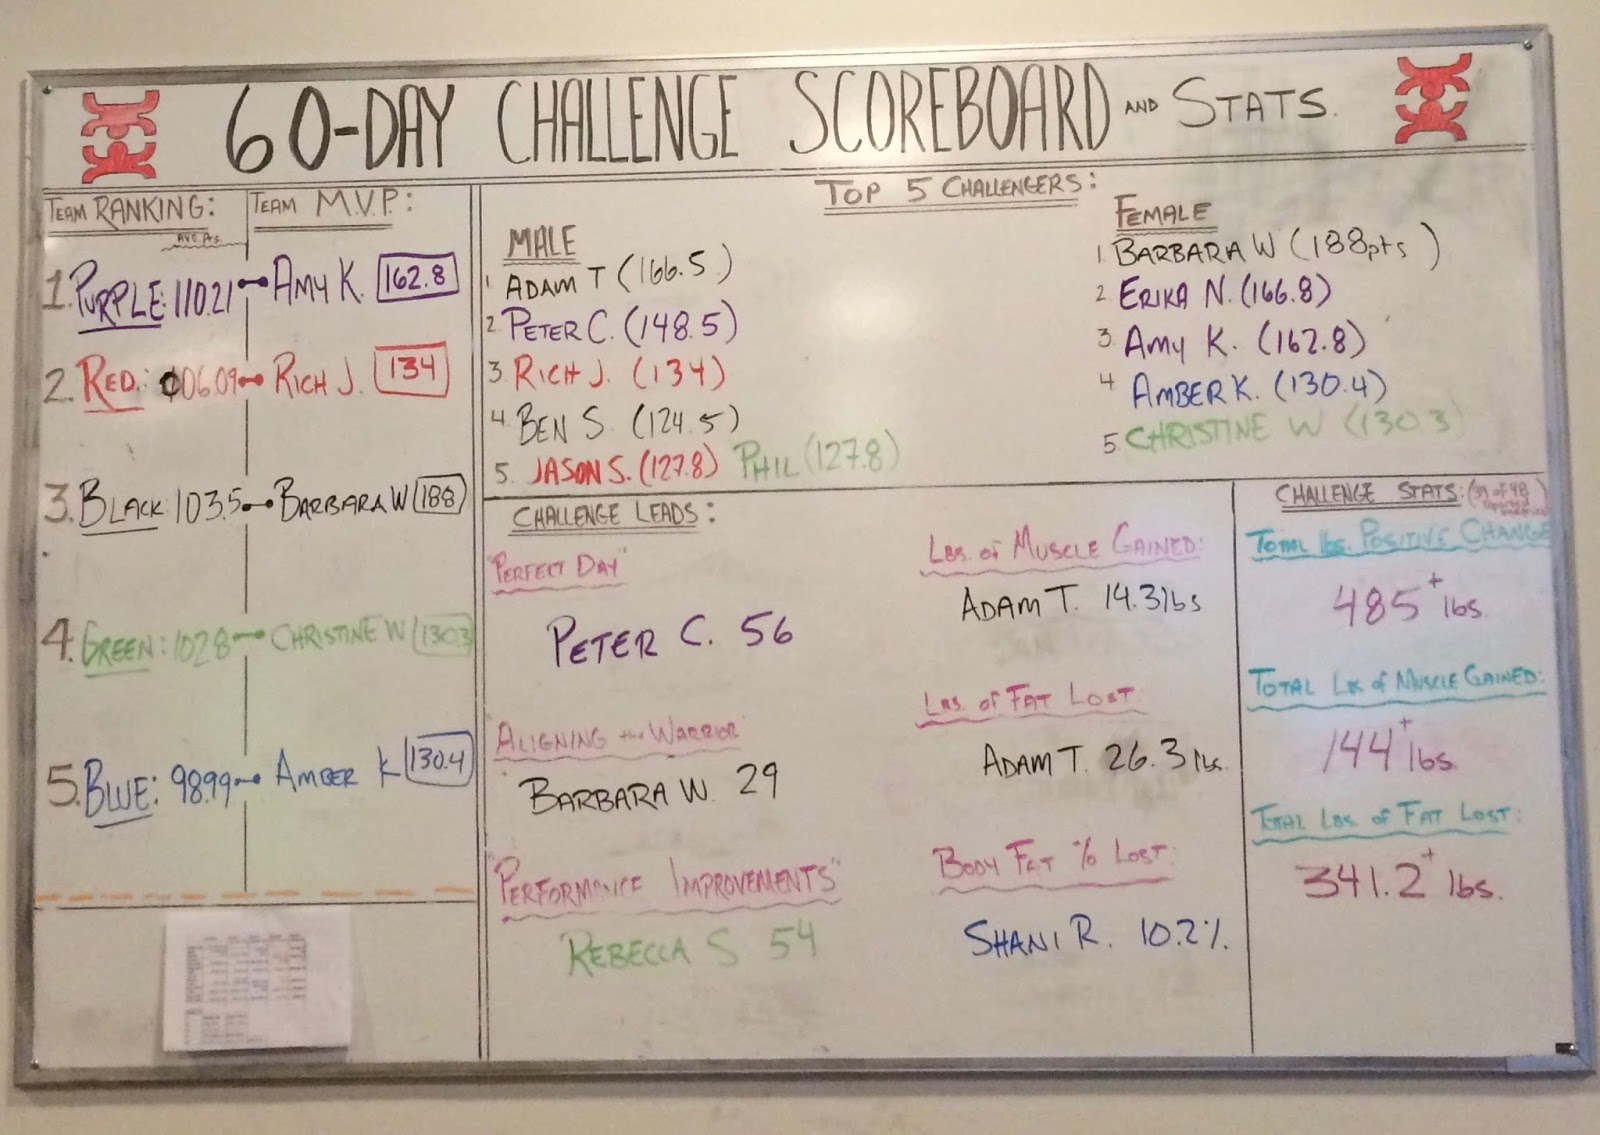 60-DAY CHALLENGE SCOREBOARD AND STATS.
TEAM RANKING:
AVG. Pts.
1. PURPLE: 110.21
2. RED: 106.09
3. BLACK: 103.5
4. GREEN: 102.8
5. BLUE: 98.99
TEAM M.V.P:
AMY K. 162.8
RICH J. 134
BARBARA W 188
CHRISTINE W 130.3
AMBER K 130.4
TOP 5 CHALLENGERS:
MALE
1. ADAM T (166.5)
2. PETER C. (148.5)
3. RICH J. (134)
4. BEN S. (124.5)
5. JASON S. (127.8) PHIL (127.8)
FEMALE
1. BARBARA W (188pts)
2. ERIKA N. (166.8)
3. AMY K. (162.8)
4 AMBER K. (130.4)
5. CHRISTINE W (130.3)
CHALLENGE LEADS:
"PERFECT DAY"
PETER C. 56
ALIGNING the WARRIOR
BARBARA W. 29
"PERFORMANCE IMPROVEMENTS"
REBECCA S 54
Lbs. of MUSCLE GAINED:
ADAM T. 14.3 lbs
Lbs. of FAT LOST
ADAM T. 26.3 lbs.
BODY FAT % LOST:
SHANI R. 10.2%.
CHALLENGE STATS: (39 of 48
reported
TOTAL lbs. POSITIVE CHANGE
485+ lbs.
TOTAL Lbs of MUSCLE GAINED:
144+ lbs.
TOTAL Lbs. of FAT LOST:
341.2+ lbs.